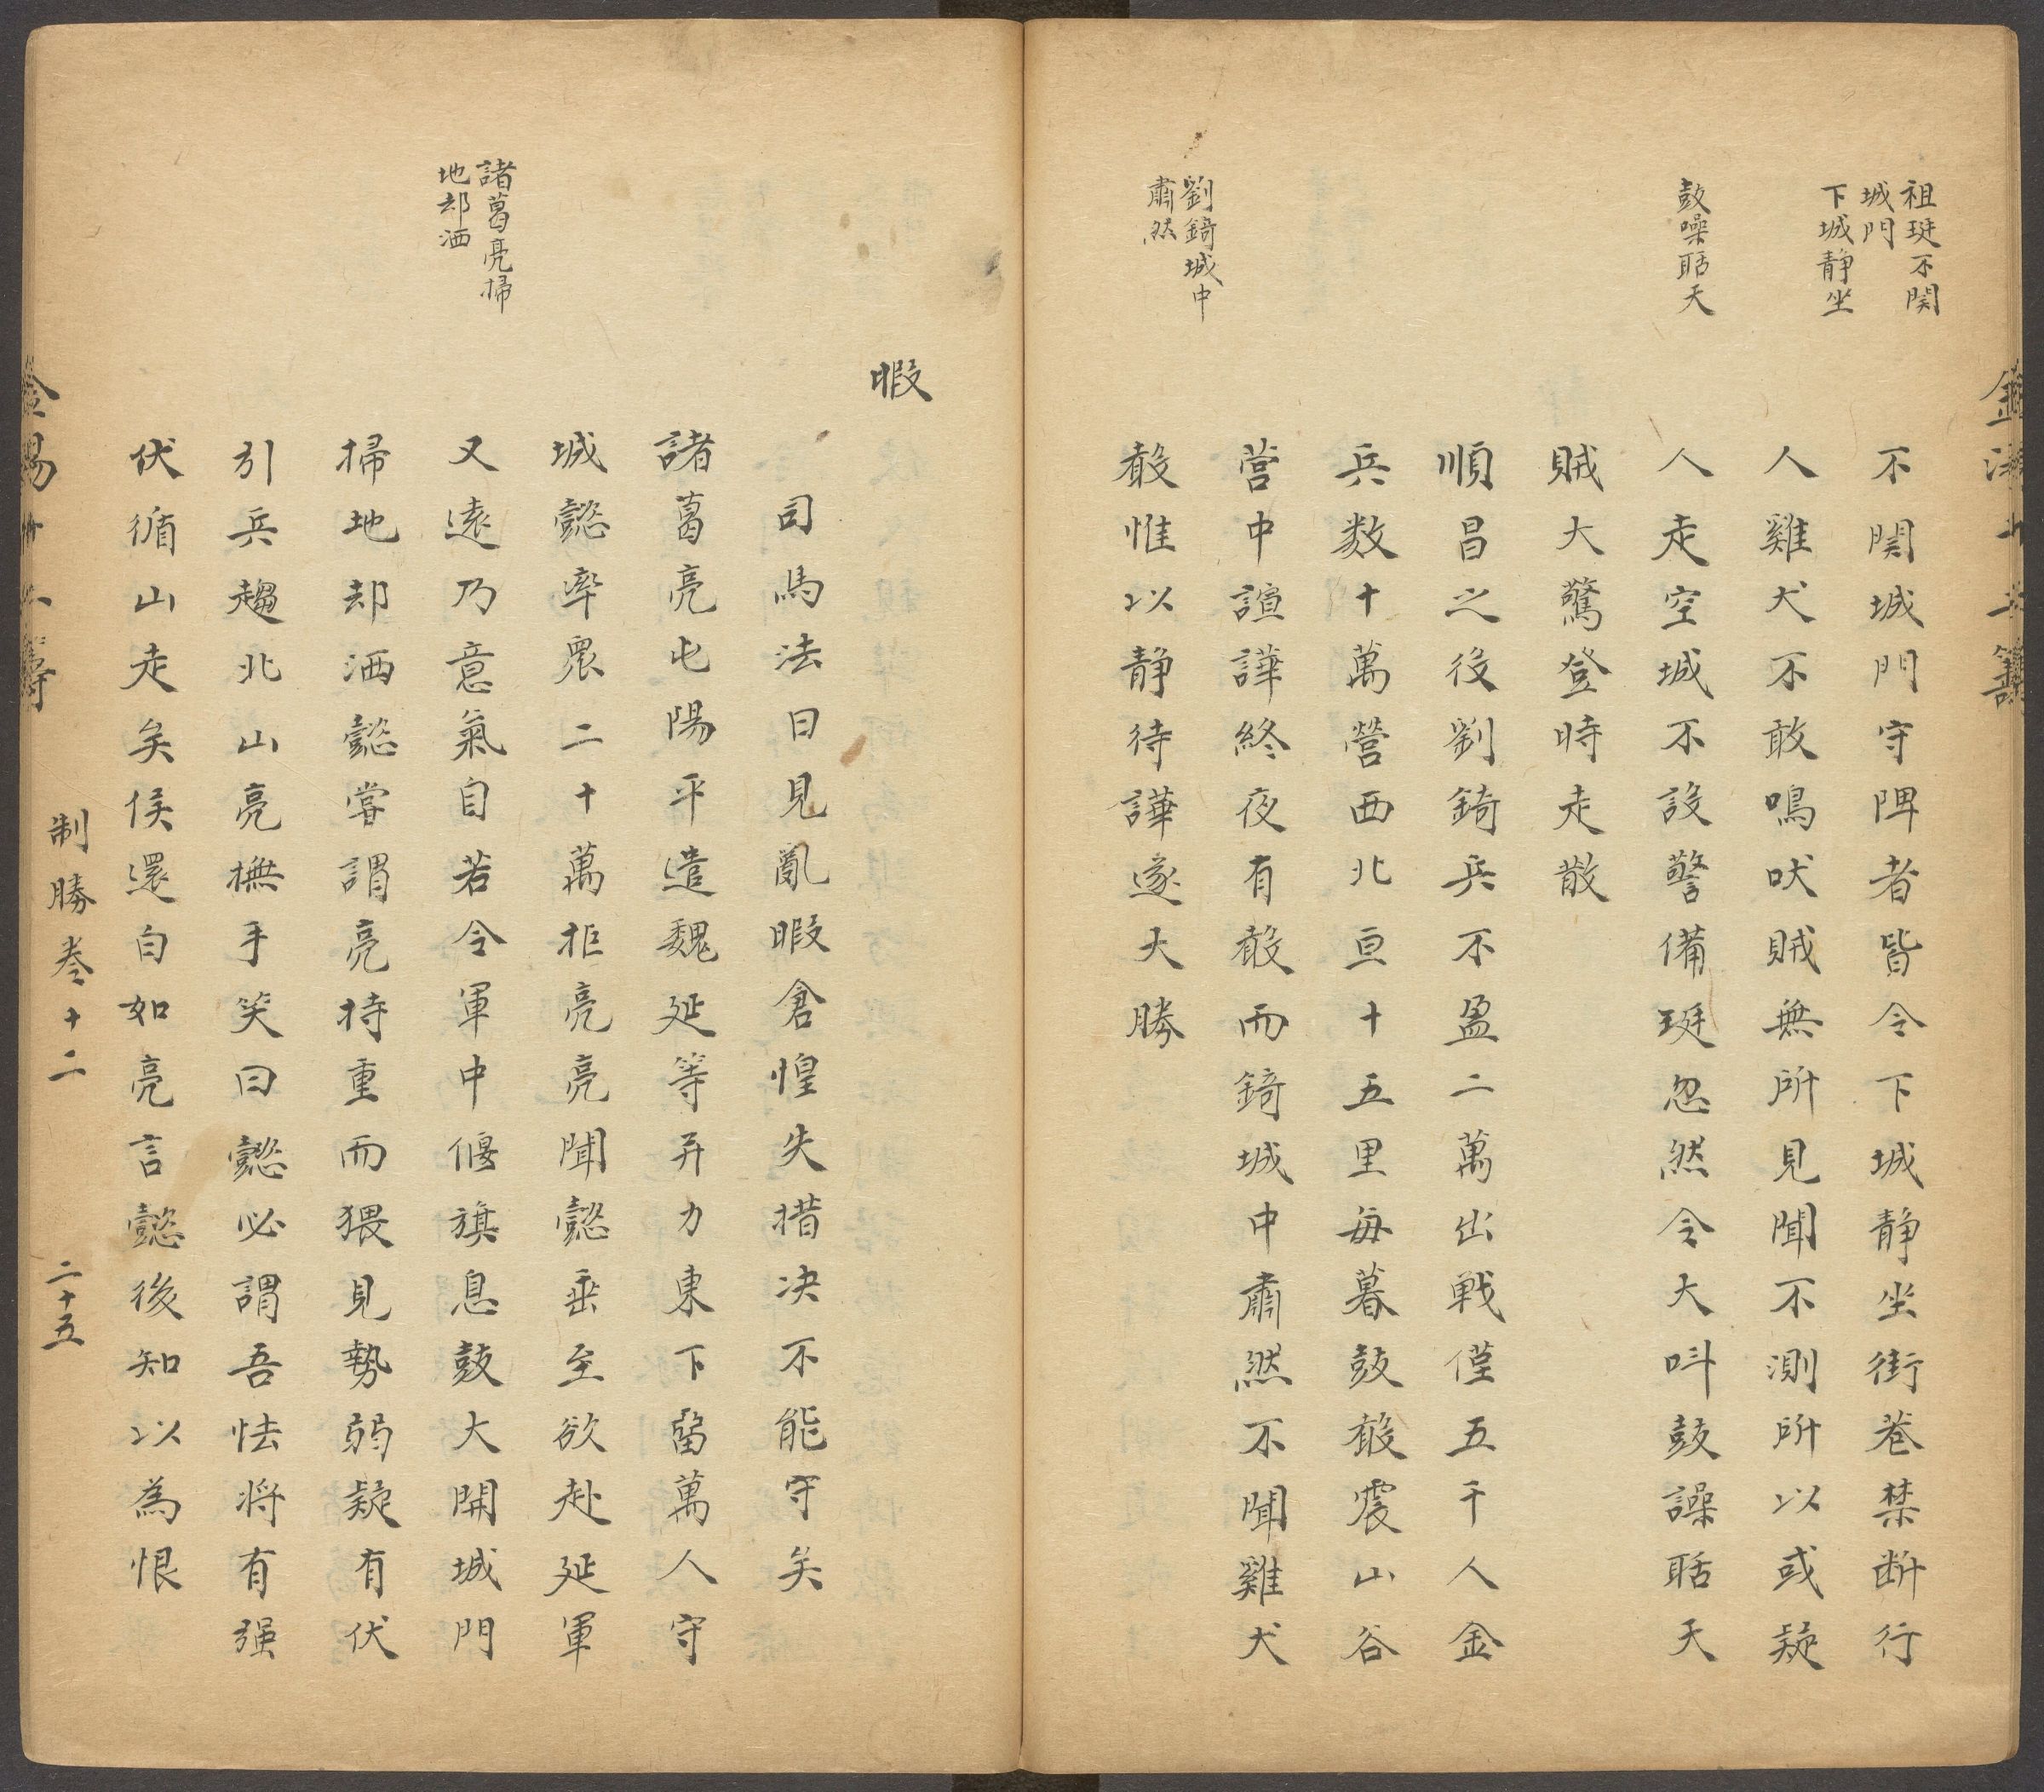 祖珽不関
城門
下城静坐
鼓噪聒天
劉錡城中
肅然
不関城門守陴者皆令下城静坐街巷禁断行
人雞犬不敢鳴吠賊無所見聞不測所以或疑
人走空城不設警備珽忽然令大呌鼓譟聒天
賊大驚登時走散
順昌之役劉錡兵不盈二萬出戦僅五千人金
兵数十萬營西北亘十五里毎暮鼓聲震山谷
营中諠譁終夜有聲而錡城中肅然不聞雞犬
聲惟以静待譁遂大勝
諸葛亮掃
地却洒
暇
司馬法曰見亂暇倉惶失措决不能守矣
諸葛亮屯陽平遣魏延等并力東下畱萬人守
城懿率衆二十萬拒亮亮聞懿垂至欲赴延軍
又遠乃意氣自若令軍中偃旗息鼓大開城門
掃地却洒懿嘗謂亮持重而猥見勢弱疑有伏
引兵趨北山亮撫手笑曰懿必謂吾怯将有强
伏循山走矣侯還白如亮言懿後知以為恨
制勝卷十二
二十五